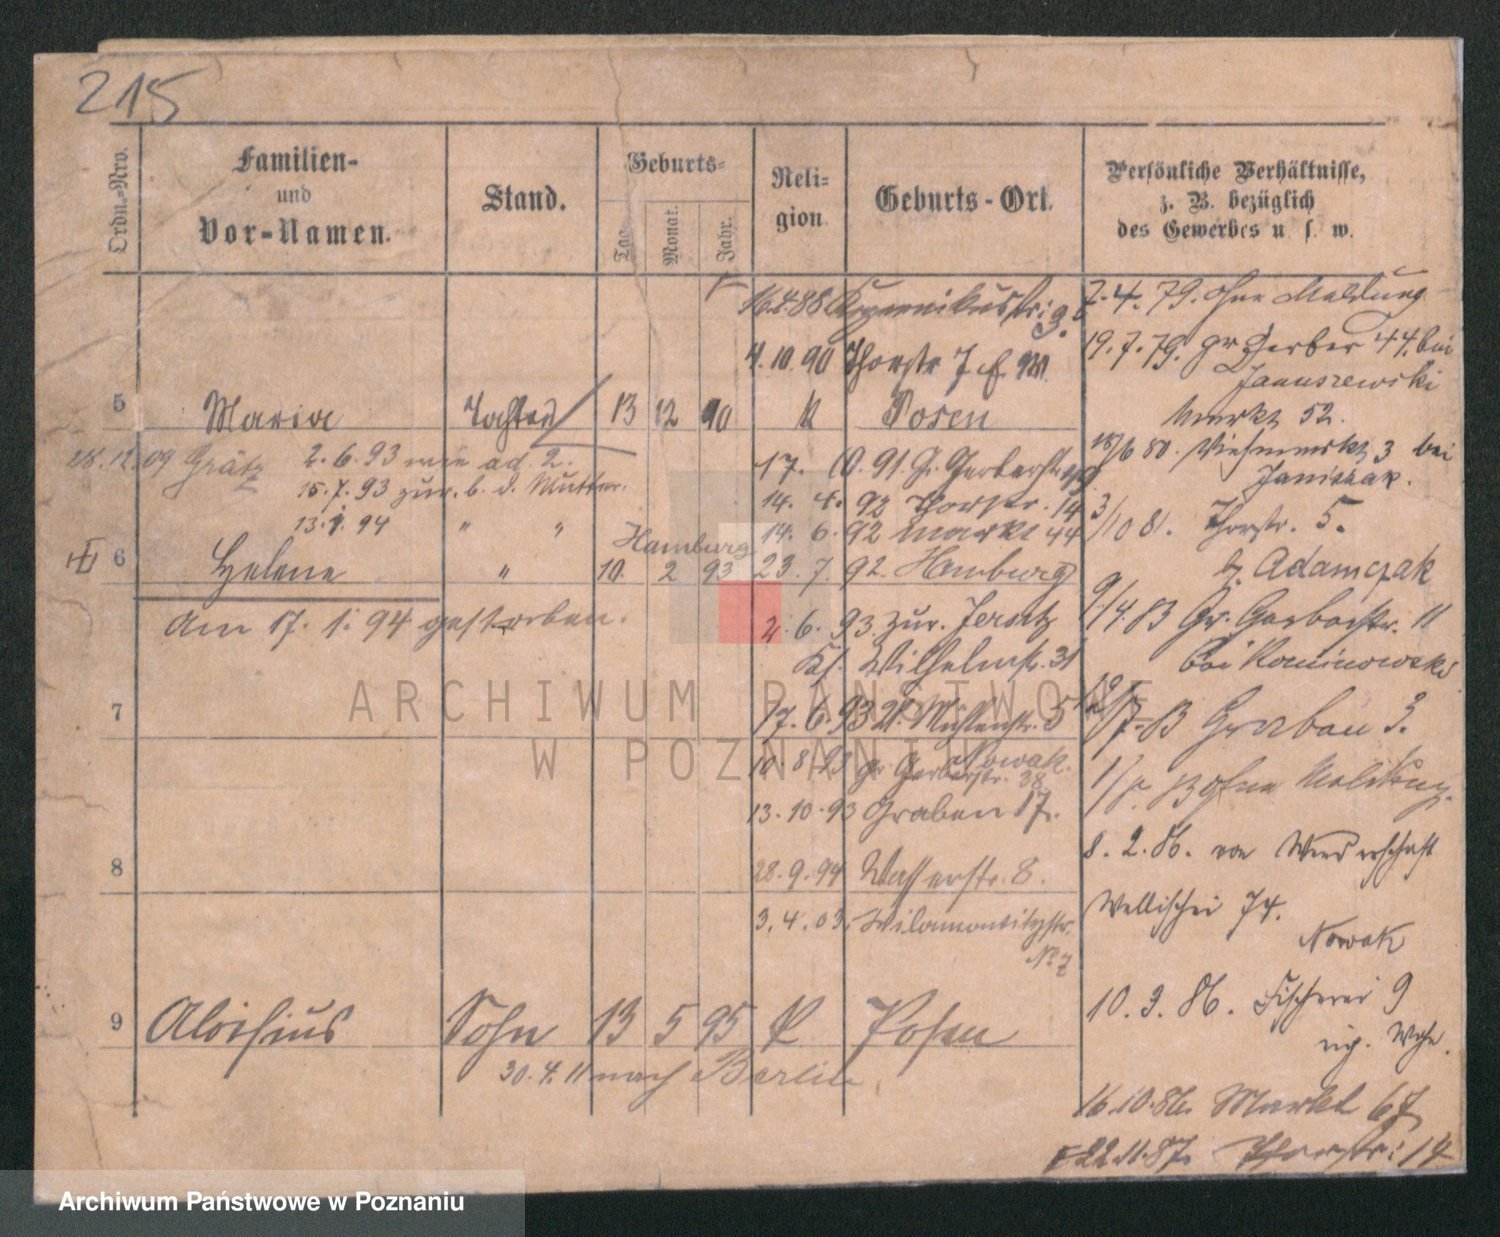 215
Ordn.-Nro.
Familien-
und
Vor-Namen.
Stand.
Geburts-
Tag.
Monat.
Jahr.
Reli-
gion
Geburts-Ort.
Persönliche Verhältnisse,
z. B. bezüglich
des Gewerbes u. s. w.
16.4.88 Kopernikusstr. 9.
4.10.90 Thorstr 7
5 Maria Tochter 13 12 90 K Posen
28.12.09 Grätz 2.6.93 wie ad 2.
15.7.93 zur. b. d. Mutter.
13.1.94 " "
17. 10.91. Gr. Gerberstr.
14. 4. 92 Thorstr. 14
14. 6. 92 Markt 44
Hamburg
6 Helene " 10. 2 93 23. 7. 92. Hamburg
Am 17. 1. 94 gestorben.
2. 6. 93. zur. Jersitz
Ks. Wilhelmstr. 31
7 17. 6. 93 Mühlenstr. 5
Nowak.
10. 8. 93 gr Gerberstr. 38.
13.10.93 Graben 17.
8 28.9.94 Wasserstr. 8.
3.4.03. Wilamowitzstr.
No 7
9 Aloisius Sohn 13 5 95 K Posen
30.4.11 nach Berlin
7.4.79. ohne Meldung
19.7.79. gr Gerber 44. bei
Januszewski
Markt 52.
18/6 80. Viehmarkt 3 bei
Janiszak.
3/10 81. Thorstr. 5.
b. Adamczak
9/4.83 Gr. Gerberstr. 11
bei Kaminowski
/7.83 Graben 3.
ohne Meldung.
8.2.86. von Wanderschaft
Wallischei 74.
Nowak
10.3.86. Fischerei 9
16.10.86. Markt 67
22.11.87. Thorstr: 14
ARCHIWUM PAŃSTWOWE
W POZNANIU
Archiwum Państwowe w Poznaniu